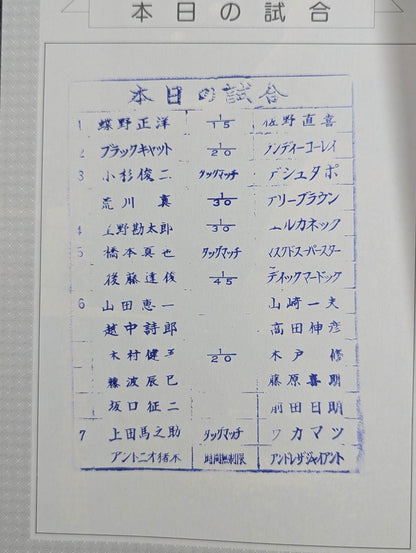 本日の試合
本日の試合
1 蝶野正洋 1/15 佐野直喜
2 ブラックキャット 1/20 アンディーコーレイ
3 小杉俊二 タッグマッチ デシュタポ
荒川真 1/30 アリーブラウン
4 上野勘太郎 1/30 エルカネック
5 橋本真也 タッグマッチ マスクドスーパースター
後藤達俊 1/45 ディックマードック
6 山田恵一 山崎一夫
越中詩郎 高田伸彦
木村健吾 1/20 木戸修
藤波辰巳 藤原喜明
坂口征二 前田日明
7 上田馬之助 タッグマッチ ワカマツ
アントニオ猪木 時間無制限 アンドレザジャイアント